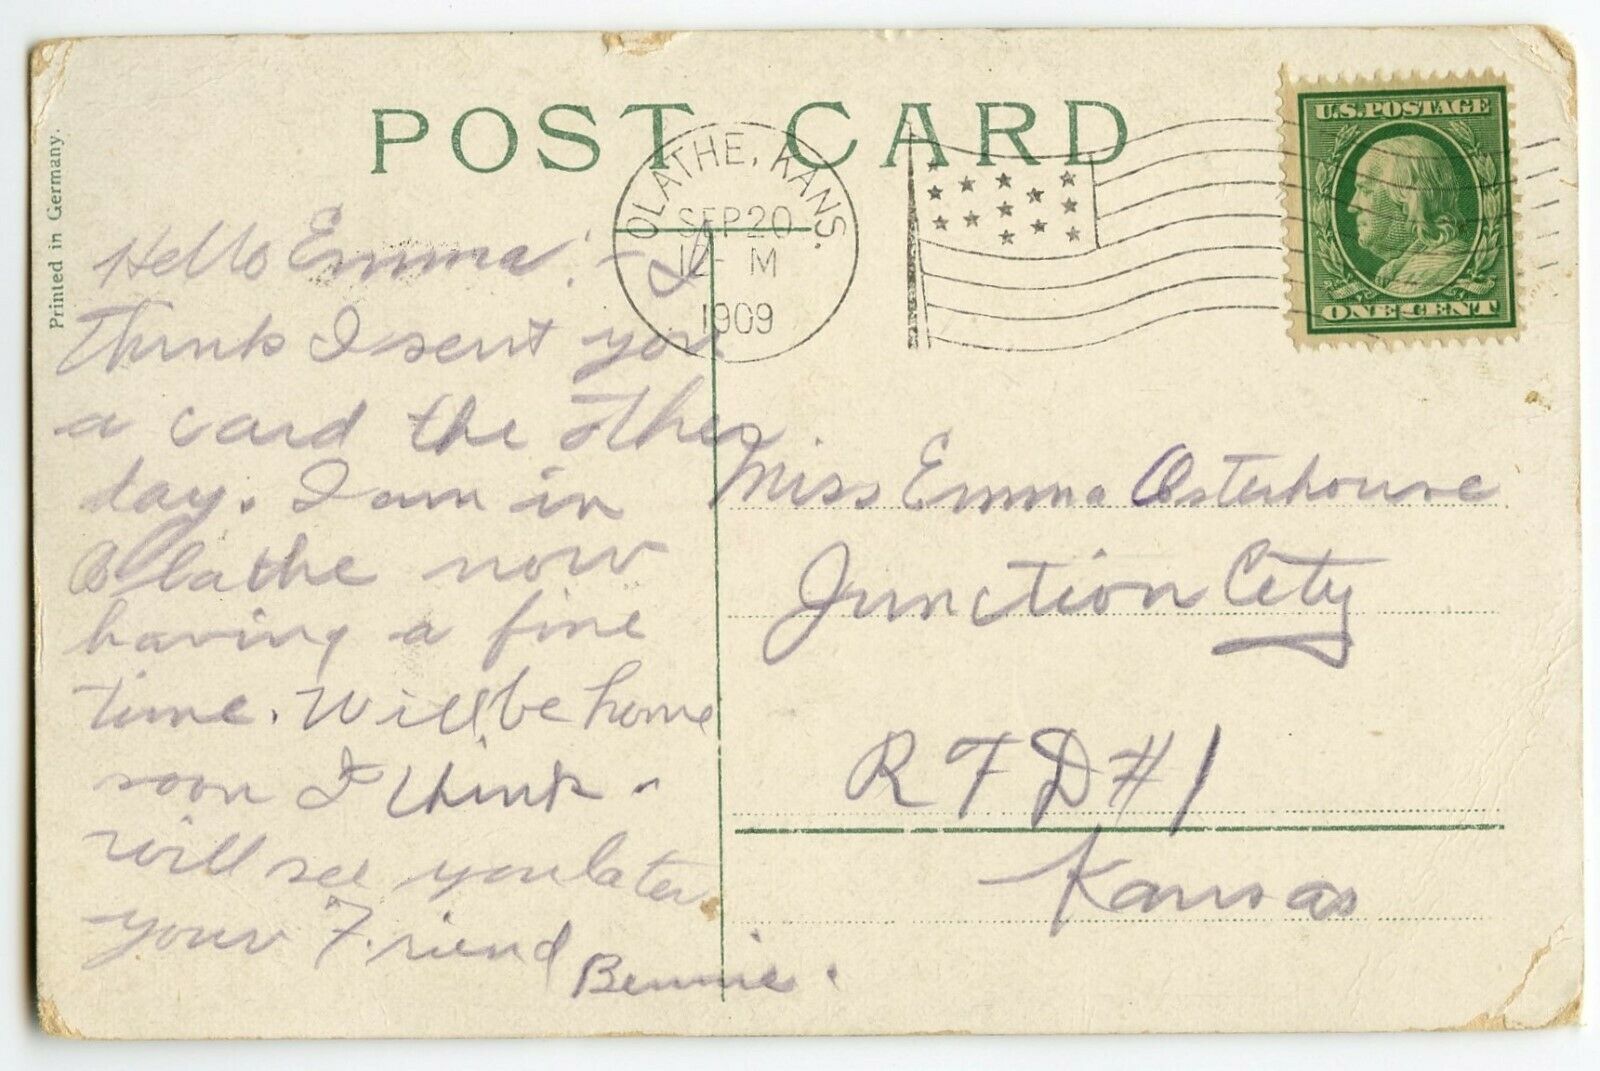 Printed in Germany.
POST CARD
OLATHE, KANS.
SEP 20
12- M
1909
U.S. POSTAGE
ONE CENT
Hello Emma! - I
think I sent you
a card the other
day. I am in
Olathe now
having a fine
time. Will be home
soon I think.
will see you later
your Friend
Bennie.
Miss Emma Osterhouse
Junction City
R F D # 1
Kansas